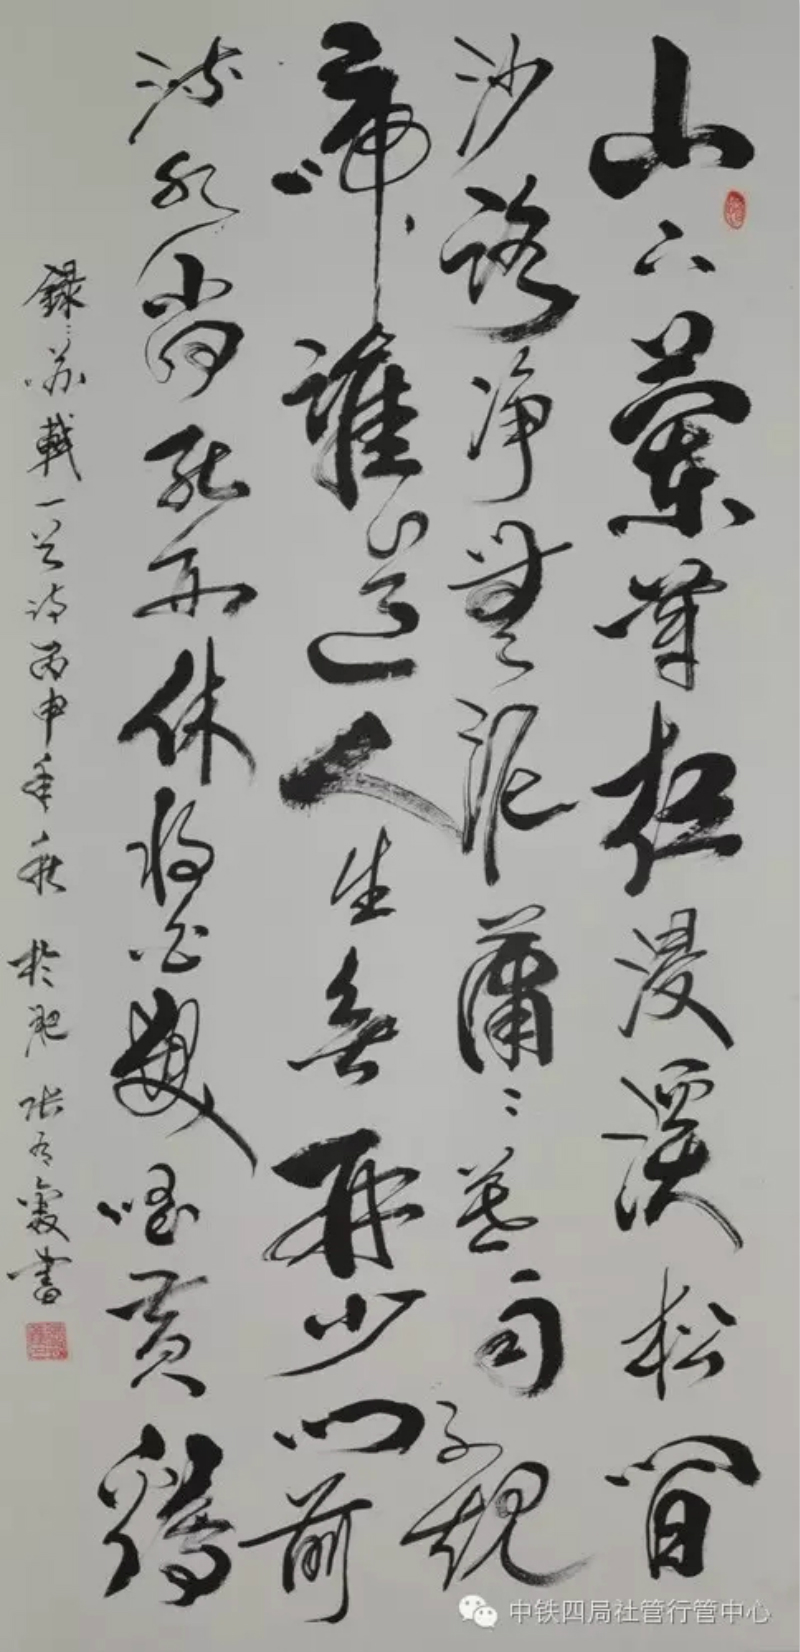 山下蘭芽短浸溪松間
沙路净無泥蕭〻暮雨子規
啼誰道人生無再少門前
流水尚能西休將白髮唱黄鷄
録苏軾一首诗丙申年秋於肥张書
中铁四局社管行管中心